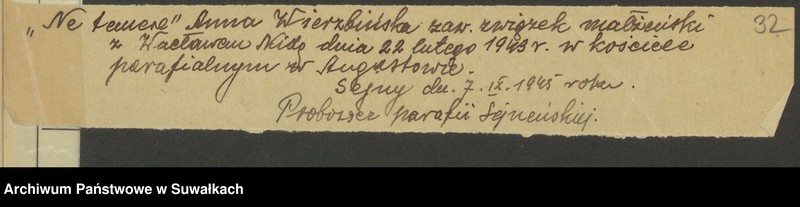 „Ne temere" Anna Wierzbińska zaw. związek małżeński 32
z Wacławem Nido dnia 22 lutego 1943 r. w kościele
parafialnym w Augustowie.
Sejny dn. 7. IX. 1945 roku.
Proboszcz parafii Sejneńskiej.
Archiwum Państwowe w Suwałkach